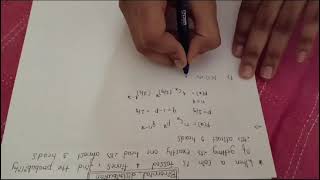 Binomial distribution
* When a coin is tossed 4 times find the probability
of getting (i) Exactly one head (ii) atmost 3 heads
(iii) atleast heads
p(x) = nCx pˣ qⁿ⁻ˣ
q = 1-p
n=4
p(x) = 4Cx